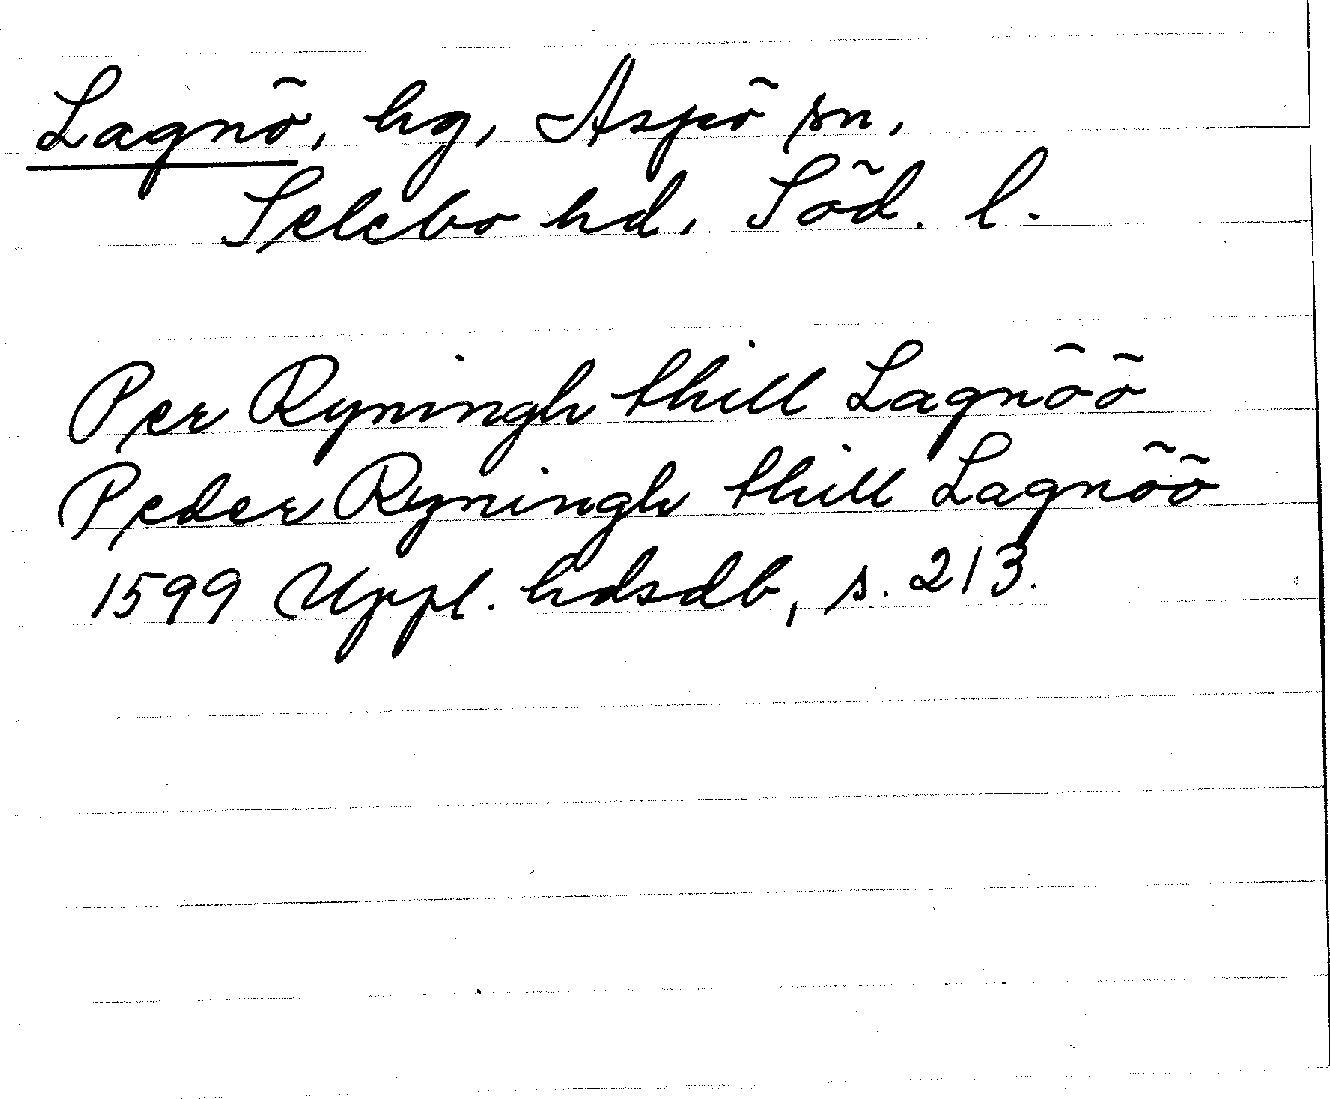 Lagnö, hg, Aspö sn,
Selebo hd, Söd. l.
Per Ryningh thill Lagnöö
Peder Ryningh thill Lagnöö
1599 Uppl. hdsdb, s. 213.